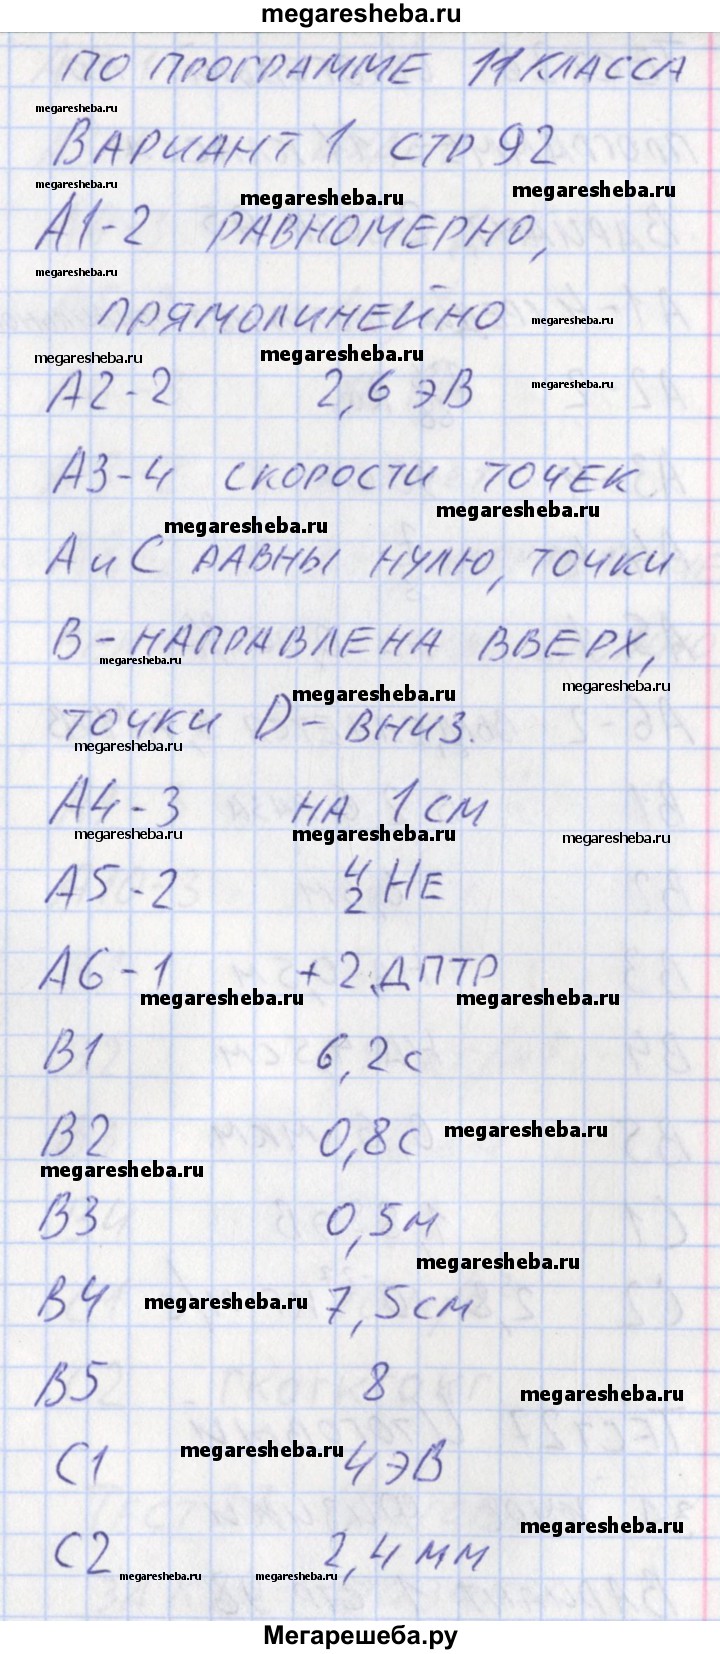 megaresheba.ru
ПО ПРОГРАММЕ 11 КЛАССА
megaresheba.ru
ВАРИАНТ 1 СТР 92
megaresheba.ru
megaresheba.ru megaresheba.ru
А1-2 РАВНОМЕРНО,
megaresheba.ru
ПРЯМОЛИНЕЙНО megaresheba.ru
megaresheba.ru megaresheba.ru
А2-2 2,6 эВ megaresheba.ru
А3-4 СКОРОСТИ ТОЧЕК
megaresheba.ru megaresheba.ru
А и С РАВНЫ НУЛЮ, ТОЧКИ
В - НАПРАВЛЕНА ВВЕРХ,
megaresheba.ru megaresheba.ru megaresheba.ru
ТОЧКИ D - ВНИЗ.
megaresheba.ru
А4-3 НА 1 СМ
megaresheba.ru megaresheba.ru megaresheba.ru
А5-2 ⁴₂Не
А6-1 +2 ДПТР
megaresheba.ru megaresheba.ru
В1 6,2 с
В2 0,8 с megaresheba.ru
megaresheba.ru
В3 0,5 м
megaresheba.ru
В4 megaresheba.ru 7,5 см
В5 8 megaresheba.ru
С1 megaresheba.ru 4 эВ
megaresheba.ru
С2 2,4 мм
megaresheba.ru megaresheba.ru
Мегарешеба.ру